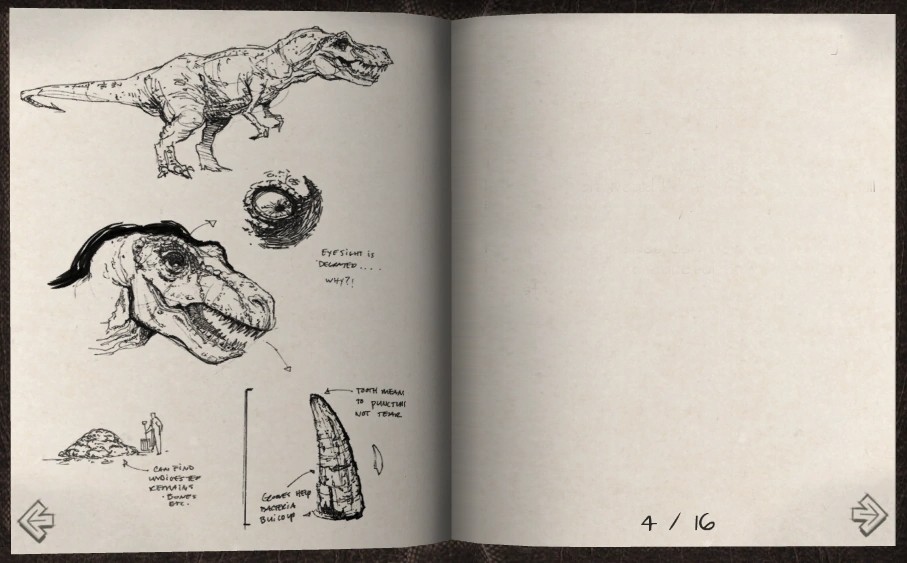 EYESIGHT IS
DEGRADED....
WHY?!
TOOTH MEAN
TO PUNCTURE
NOT TEAR
CAN FIND
UNDIGESTED
REMAINS
- BONES
ETC.
GROOVES HELP
BACTERIA
BUILDUP
4 / 16